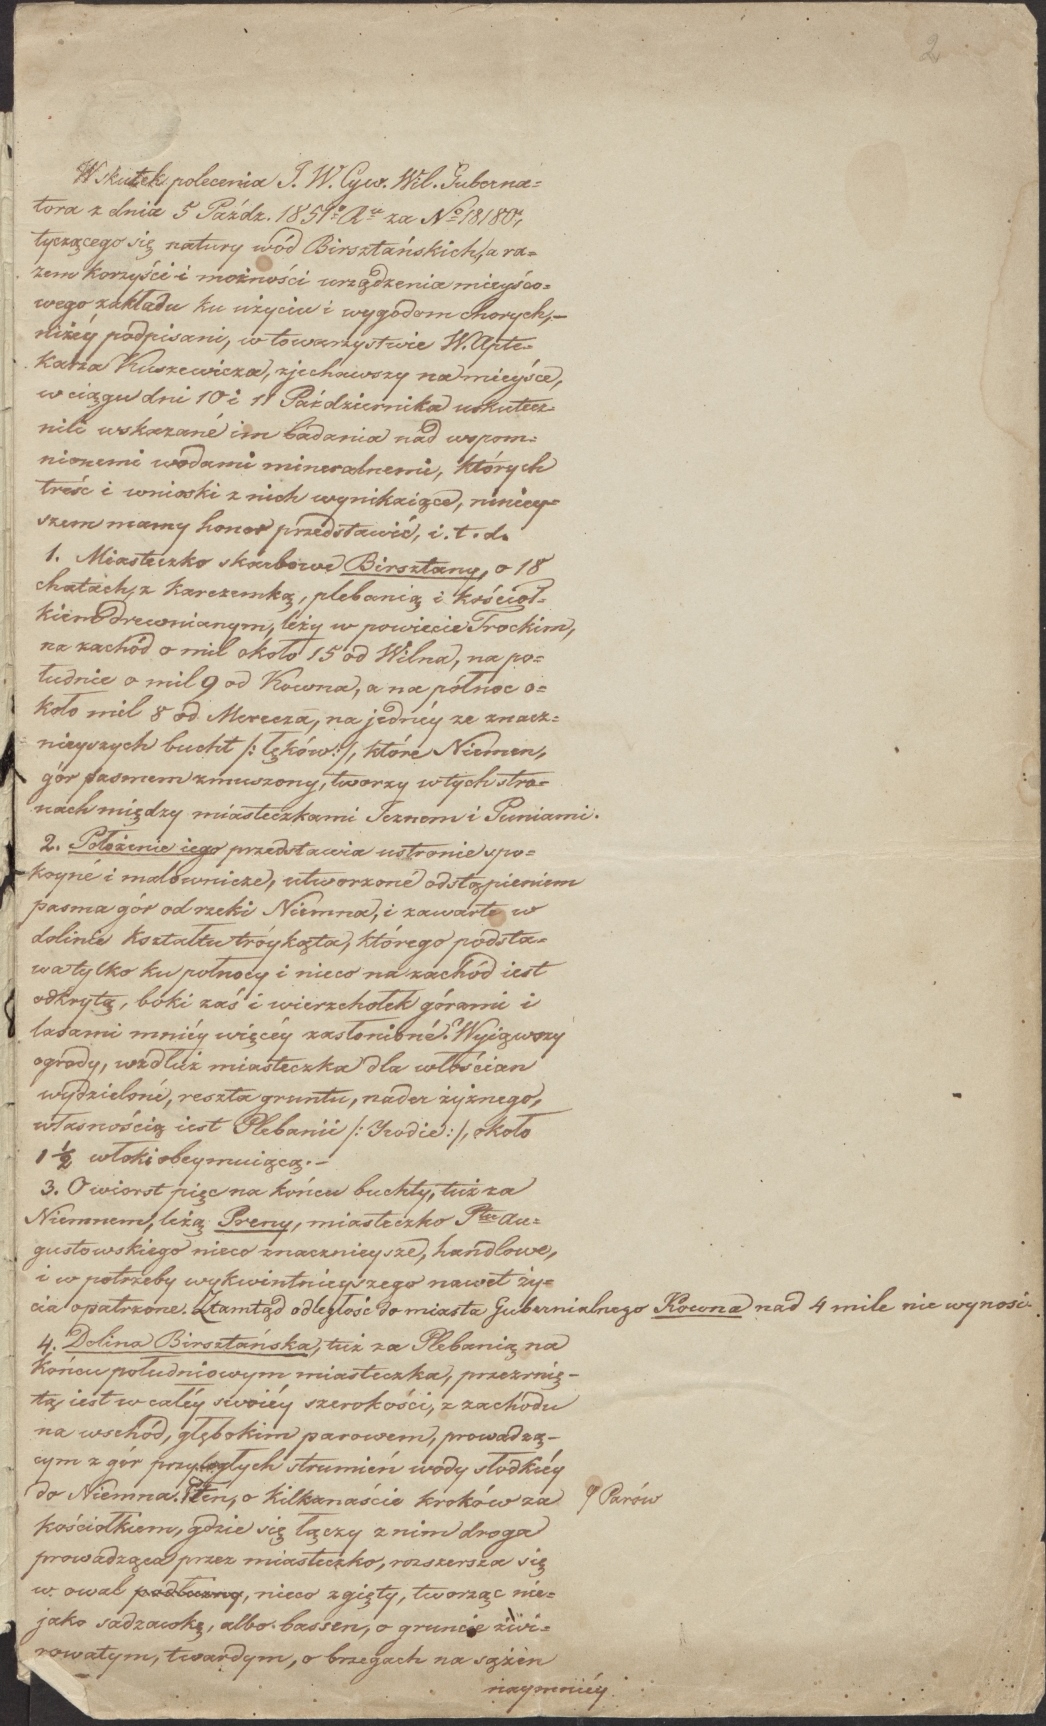 2
Wskutek polecenia J. W. Cyw. Wil. Guberna=
tora z dnia 5 Paźdz. 1851º Rº za Nº 18180,
tyczącego się natury wód Birsztańskich, a ra=
zem korzyści i możności urządzenia mieyśco=
wego zakładu ku użyciu i wygodom chorych,—
niżéy podpisani, w towarzystwie W. Apte=
karza Kuszewicza, zjechawszy na mieyśce,
w ciągu dni 10 i 11 Października uskutecz=
nili wskazané im badania nad wspom=
nionemi wodami mineralnemi, których
treść i wnioski z nich wynikaiące, niniey=
szem mamy honor przedstawić, i. t. d.
1. Miasteczko skarbowe Birsztany, o 18
chatach, z karczemką, plebanią i kościoł=
kiem drewnianym, leży w powiecie Trockim,
na zachód o mil około 15 od Wilna, na po=
łudnie o mil 9 od Kowna, a na północ o=
koło mil 8 od Merecza, na jednéy ze znacz=
nieyszych bucht /: łęków :/, które Niemen,
gór pasmem zmuszony, tworzy w tych stro=
nach między miasteczkami Jeznem i Puniami.
2. Położenie iego przedstawia ustronie spo=
koyné i malownicze, utworzoné odstąpieniem
pasma gór od rzeki Niemna, i zawarte w
dolinie kształtu tróykąta, którego podsta=
wa tylko ku północy i nieco na zachód iest
odkrytą, boki zaś i wierzchołek górami i
lasami mniéy więcéy zasłonioné. Wyiąwszy
ogrody, wzdłuż miasteczka dla włościan
wydzieloné, reszta gruntu, nader żyznego,
własnością iest Plebanii /: Funduszie :/, około
1 ½ włoki obeymuiącą.—
3. O wiorst pięć na końcu buchty, tuż za
Niemnem, leżą Preny, miasteczko Ptu Au=
gustowskiego nieco znacznieysze, handlowe,
i w potrzeby wykwintnieyszego nawet ży=
cia opatrzone. Ztamtąd odległość do miasta Gubernialnego Kowna nad 4 mile nie wynosi.
4. Dolina Birsztańska, tuż za Plebanią na
końcu południowym miasteczka, przerznię=
tą iest w całéy swoiéy szerokości, z zachodu
na wschód, głębokim parowem, prowadzą=
cym z gór przyległych strumień wody słodkiéy
do Niemna. Ten, o kilkanaście kroków za
Parów
kościołkiem, gdzie się łączy z nim droga
prowadząca przez miasteczko, rozszersza się
w owal podłużny, nieco zgięty, tworząc nie=
jako sadzawkę, albo bassen, o gruncie żwi=
rowatym, twardym, o brzegach na sążeń
naymniéy